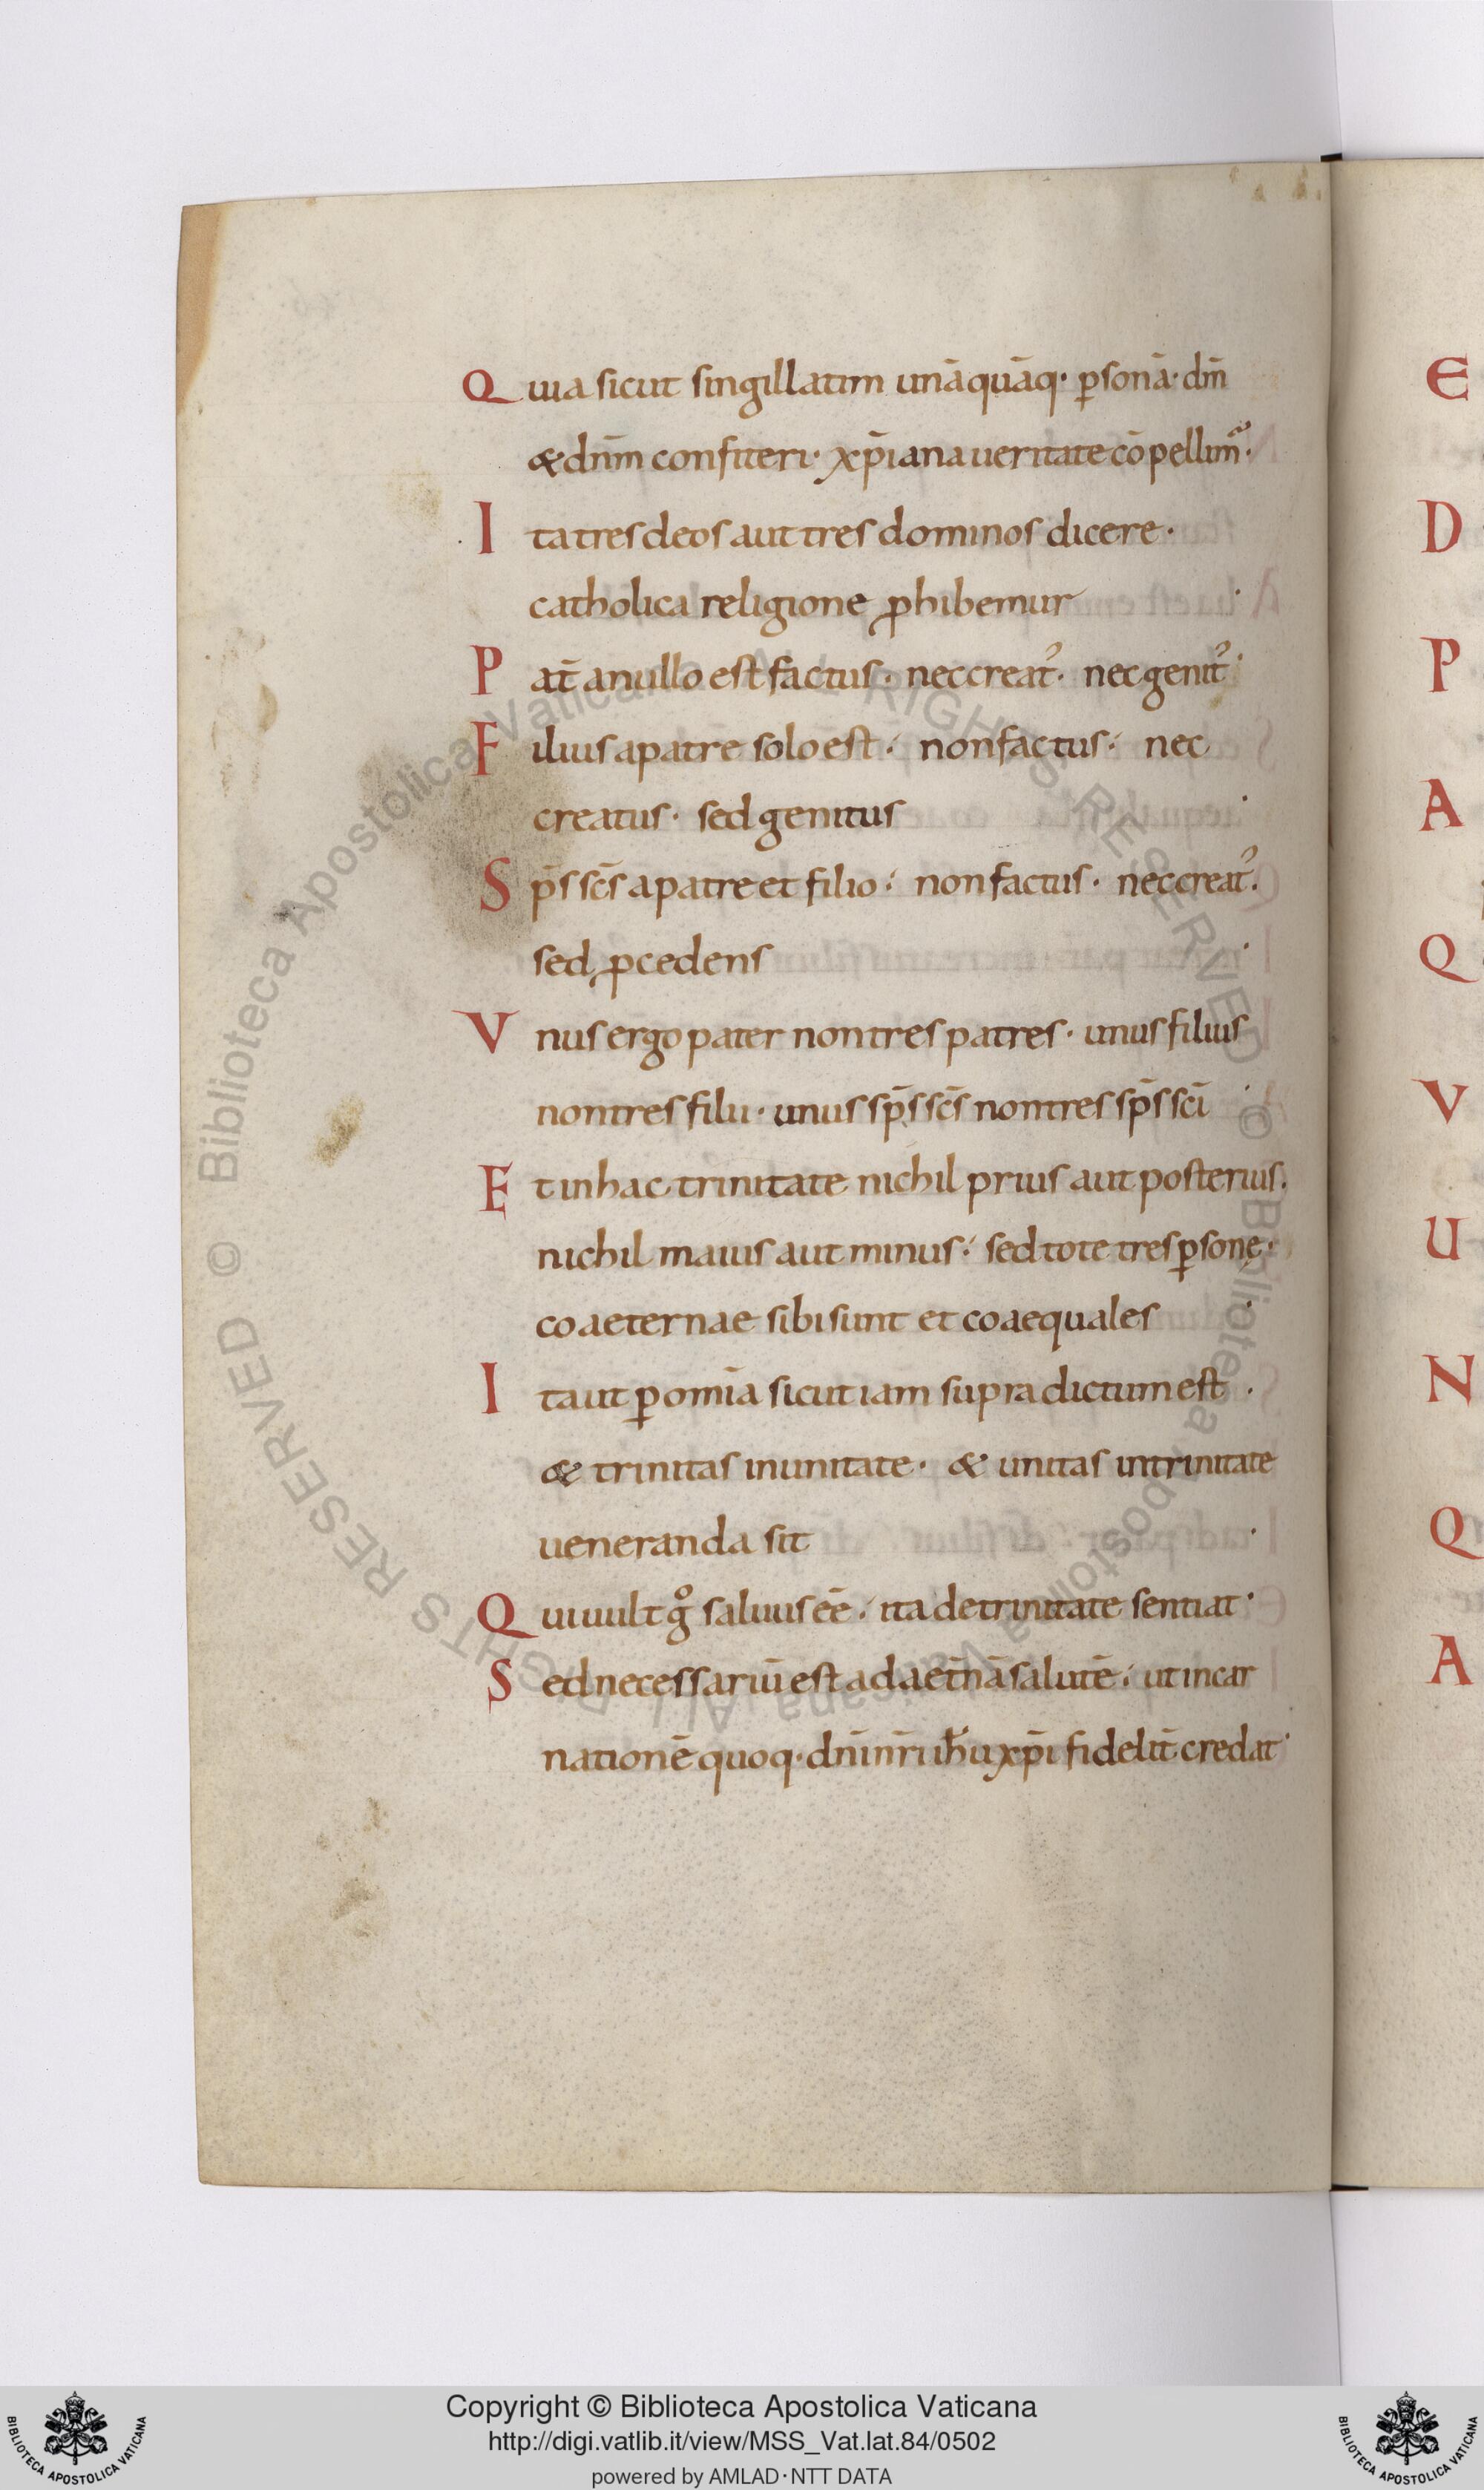 Quia sicut singillatim unāquāq· p̱sonā· dm̄
& dnm̄ confiteri· xp̄iana ueritate cōpellim̃·
Ita tres deos aut tres dominos dicere·
catholica religione ꝓhibemur·
Pat̄ a nullo est factus· nec creatꝰ· nec genitꝰ·
Filius a patre solo est·́ non factus·́ nec
creatus· sed genitus·
Sp̄s sc̄s a patre et filio·́ non factus· nec creatꝰ·
sed ꝓcedens·
Vnus ergo pater non tres patres· unus filius
non tres filii· unus sp̄s sc̄s non tres sp̄s sc̄i·
Et in hac trinitate nichil prius aut posterius·
nichil maius aut minus·́ sed tote tres ꝑsonę·
coaeternae sibi sunt et coaequales·
Ita ut ꝑ omīa sicut iam supra dictum est·
& trinitas in unitate· & unitas in trinitate
ueneranda sit·
Qui uult gͦ saluus eē·́ ita de trinitate sentiat·
Sed necessariū est ad aet̄nā salutē·́ ut incar
nationē quoq· dn̄i nr̄i ih̄u xp̄i fidelit̄ credat·
E
D
P
A
Q
V
U
N
Q
A
© Biblioteca Apostolica Vaticana ALL RIGHTS RESERVED © Biblioteca Apostolica Vaticana ALL RIGHTS RESERVED
BIBLIOTECA APOSTOLICA VATICANA
Copyright © Biblioteca Apostolica Vaticana
http://digi.vatlib.it/view/MSS_Vat.lat.84/0502
powered by AMLAD·NTT DATA
BIBLIOTECA APOSTOLICA VATICANA